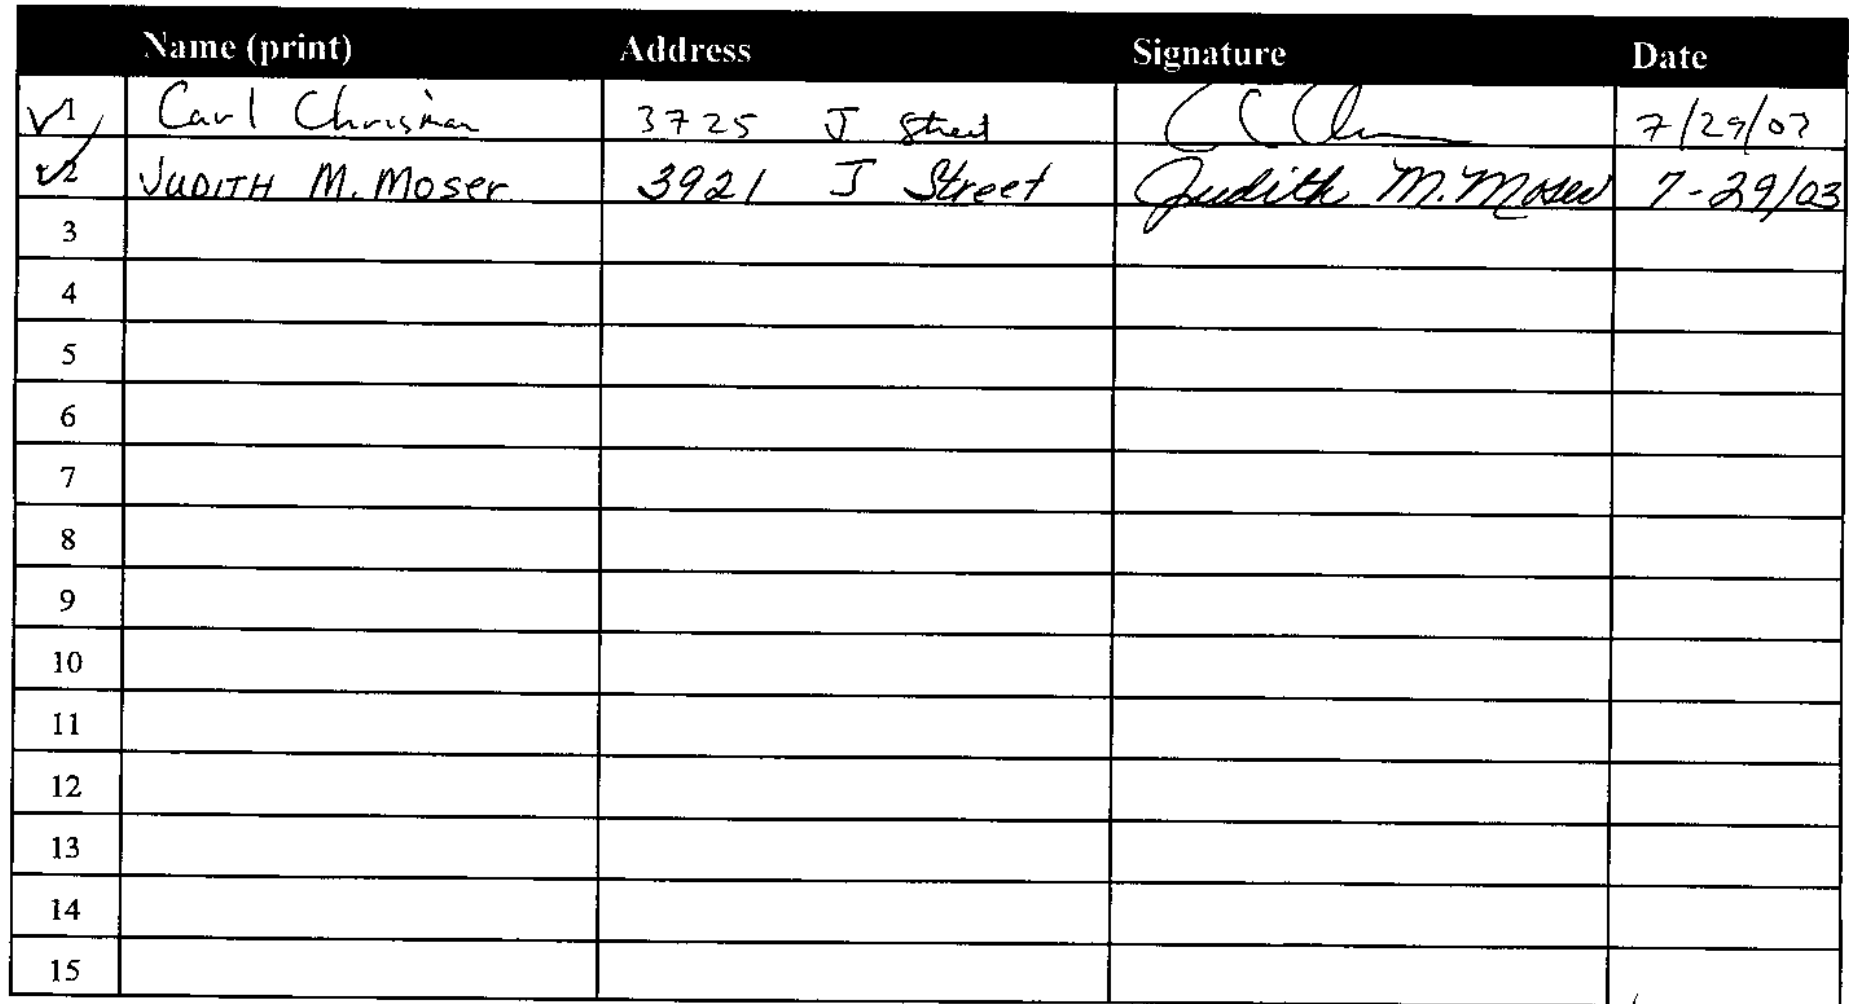 Name (print) Address Signature Date
✓1 Carl Chrisman 3725 J Street 7/29/03
✓2 JUDITH M. Moser 3921 J Street Judith M. Moser 7-29/03
3
4
5
6
7
8
9
10
11
12
13
14
15